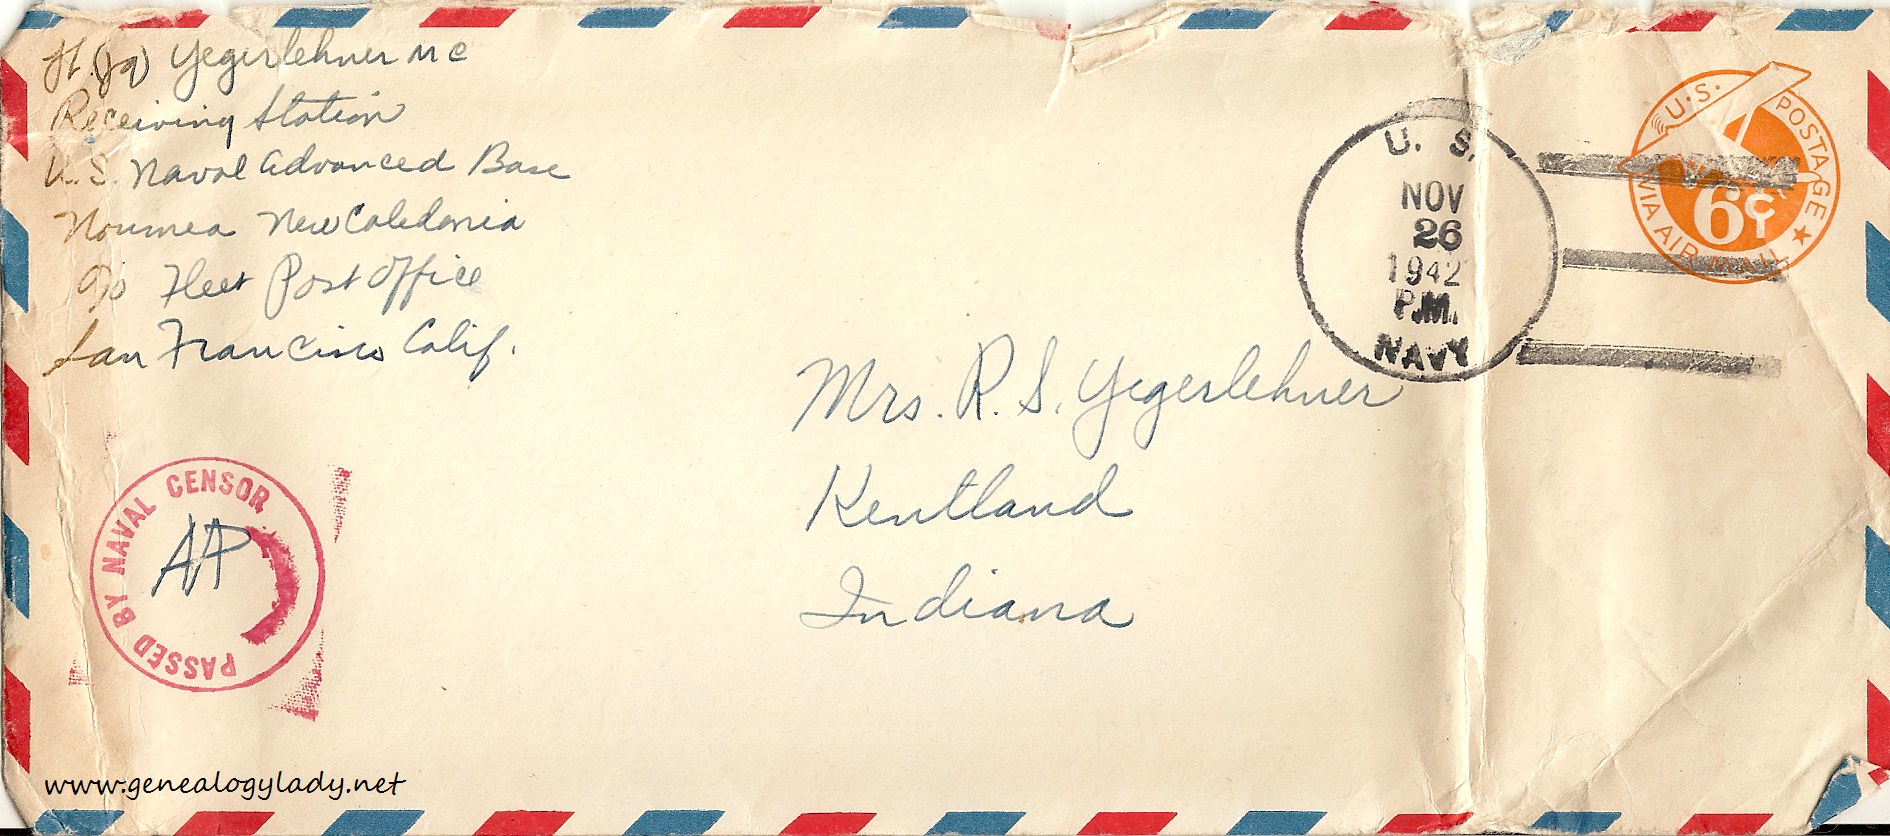 Lt. (jg) Yegerlehner MC
Receiving Station
U.S. Naval Advanced Base
Noumea New Caledonia
c/o Fleet Post Office
San Francisco Calif.
U. S.
NOV
26
1942
P.M.
NAVY
U.S. POSTAGE
6¢
VIA AIR MAIL
Mrs. R. S. Yegerlehner
Kentland
Indiana
PASSED BY NAVAL CENSOR
www.genealogylady.net